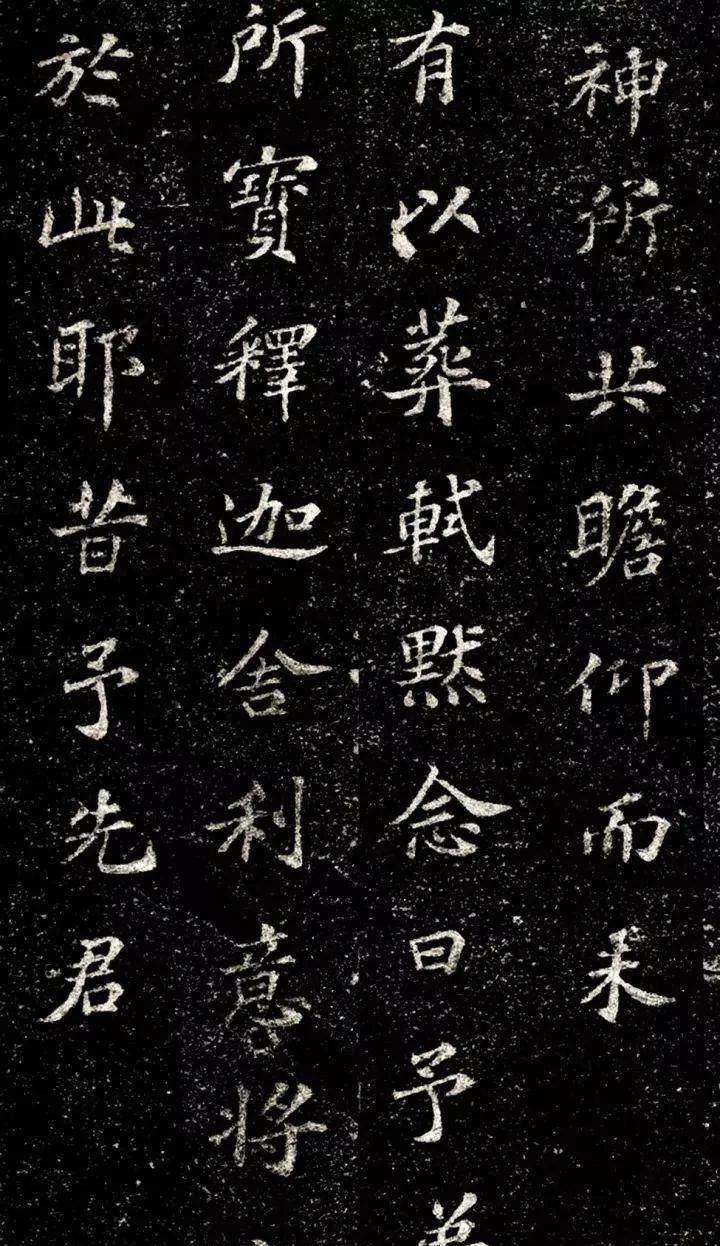 神所共瞻仰而未
有以葬軾默念曰予
所寶釋迦舍利意將
於此耶昔予先君